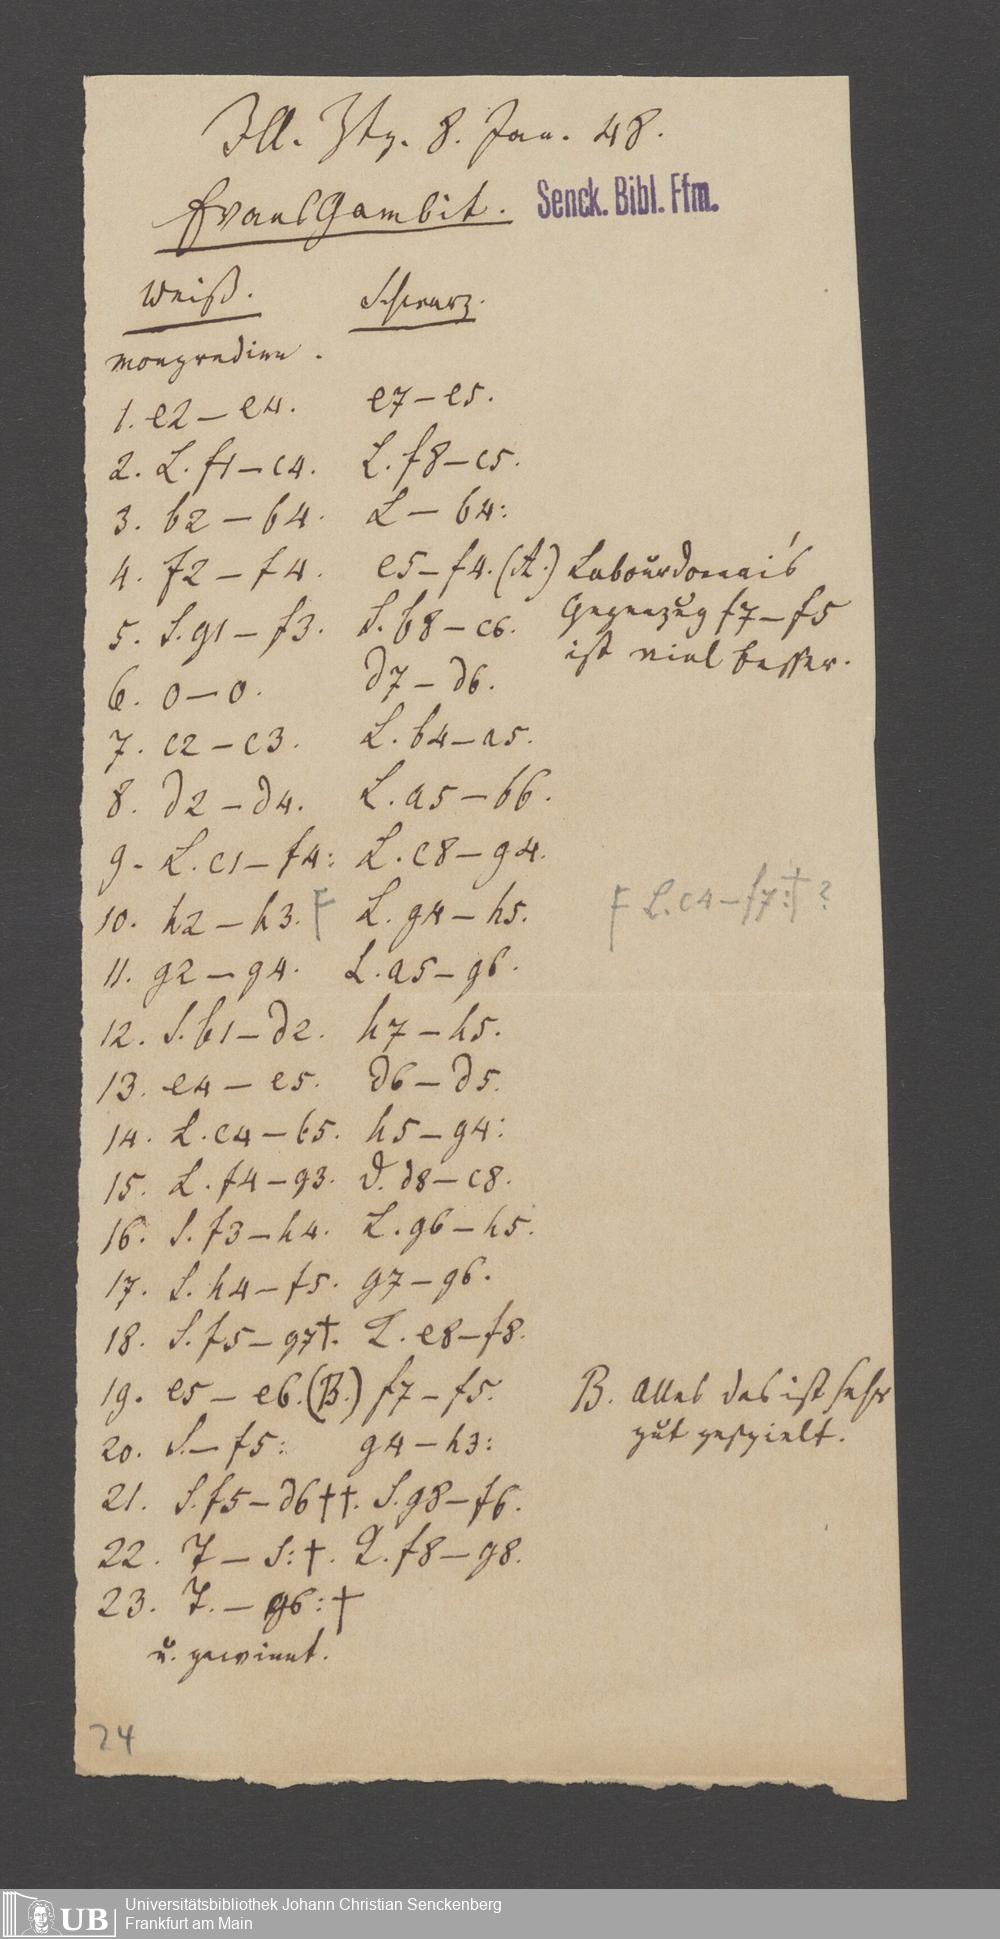 Ill. Ztg. 8. Jan. 48.
Evans Gambit. Senck. Bibl. Ffm.
Weiß. Schwarz.
Mongredien.
1. e2 – e4. e7 – e5.
2. L. f1 – c4. L. f8 – c5.
3. b2 – b4. L – b4:
4. f2 – f4. e5 – f4. (A.) Labourdonnai's
5. S. g1 – f3. S. b8 – c6. Gegenzug f7 – f5
ist viel besser.
6. 0 – 0. d7 – d6.
7. c2 – c3. L. b4 – a5.
8. d2 – d4. L. a5 – b6.
9. L. c1 – f4: L. c8 – g4.
10. h2 – h3. F L. g4 – h5. F L. c4 – f7:† ?
11. g2 – g4. L. a5 – g6.
12. S. b1 – d2. h7 – h5.
13. e4 – e5. d6 – d5.
14. L. c4 – b5. h5 – g4:
15. L. f4 – g3. D. d8 – c8.
16. S. f3 – h4. L. g6 – h5.
17. S. h4 – f5. g7 – g6.
18. S. f5 – g7†. K. e8 – f8.
19. e5 – e6. (B.) f7 – f5. B. Alles das ist sehr
20. S. – f5: g4 – h3: gut gespielt.
21. S. f5 – d6††. S. g8 – f6.
22. T – S:†. K. f8 – g8.
23. T. – g6:†
u. gewinnt.
24
UB
Universitätsbibliothek Johann Christian Senckenberg
Frankfurt am Main